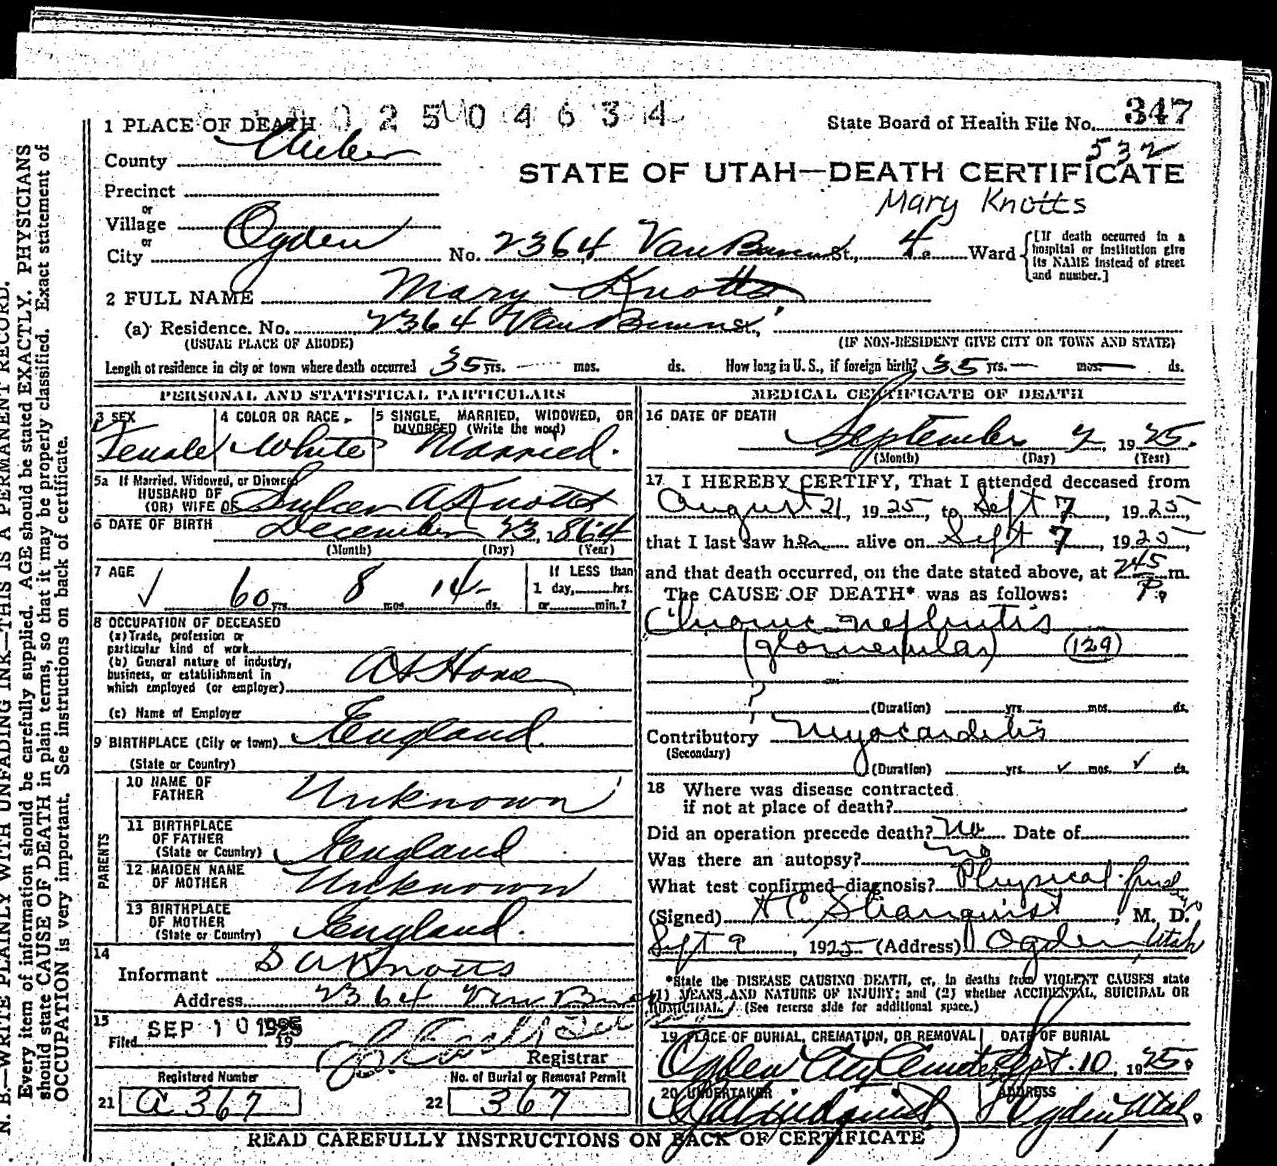 N. B.—WRITE PLAINLY WITH UNFADING INK—THIS IS A PERMANENT RECORD.
Every item of information should be carefully supplied. AGE should be stated EXACTLY. PHYSICIANS
should state CAUSE OF DEATH in plain terms, so that it may be properly classified. Exact statement of
OCCUPATION is very important. See instructions on back of certificate.
1 PLACE OF DEATH 02504634
State Board of Health File No. 347
532
County Weber
STATE OF UTAH—DEATH CERTIFICATE
Precinct
Mary Knotts
or
Village
or
City Ogden No. 2364 Van Buren St., 4. Ward
[If death occurred in a
hospital or institution give
its NAME instead of street
and number.]
2 FULL NAME Mary Knotts
(a) Residence. No. 2364 Van Buren St.
(USUAL PLACE OF ABODE) (IF NON-RESIDENT GIVE CITY OR TOWN AND STATE)
Length of residence in city or town where death occurred 35 yrs. — mos. ds. How long in U. S., if foreign birth? 35 yrs. — mos. — ds.
PERSONAL AND STATISTICAL PARTICULARS
3 SEX 4 COLOR OR RACE 5 SINGLE, MARRIED, WIDOWED, OR
DIVORCED (Write the word)
Female White Married.
5a If Married, Widowed, or Divorced
HUSBAND OF
(OR) WIFE OF A Knotts
6 DATE OF BIRTH December 23, 1864
(Month) (Day) (Year)
7 AGE If LESS than
60 yrs. 8 mos. 14 ds. 1 day, hrs.
or min.?
8 OCCUPATION OF DECEASED
(a) Trade, profession or
particular kind of work
(b) General nature of industry,
business, or establishment in
which employed (or employer) At Home
(c) Name of Employer
9 BIRTHPLACE (City or town) England
(State or Country)
PARENTS
10 NAME OF
FATHER Unknown
11 BIRTHPLACE
OF FATHER
(State or Country) England
12 MAIDEN NAME
OF MOTHER Unknown
13 BIRTHPLACE
OF MOTHER
(State or Country) England.
14
Informant S A Knotts
Address 2364 Van Buren
15
Filed SEP 10 1925 19
Registrar
Registered Number No. of Burial or Removal Permit
21 a 367 22 367
MEDICAL CERTIFICATE OF DEATH
16 DATE OF DEATH
September 7, 1925.
(Month) (Day) (Year)
17 I HEREBY CERTIFY, That I attended deceased from
August 21, 1925, to Sept 7, 1925,
that I last saw her alive on Sept 7, 1925,
and that death occurred, on the date stated above, at 245 P. m.
The CAUSE OF DEATH* was as follows:
Chronic nephritis
(glomerular) (129)
?
(Duration) yrs. mos. ds.
Contributory Myocarditis
(Secondary)
(Duration) yrs. mos. ds.
18 Where was disease contracted
if not at place of death?
Did an operation precede death? No Date of
Was there an autopsy? no
What test confirmed diagnosis? Physical
(Signed) H C Stranquist, M. D.
Sept 9, 1925 (Address) Ogden, Utah
*State the DISEASE CAUSING DEATH, or, in deaths from VIOLENT CAUSES state
(1) MEANS AND NATURE OF INJURY; and (2) whether ACCIDENTAL, SUICIDAL OR
HOMICIDAL. (See reverse side for additional space.)
19 PLACE OF BURIAL, CREMATION, OR REMOVAL DATE OF BURIAL
Ogden City Cemetery Sept. 10, 1925.
20 UNDERTAKER ADDRESS
Lindquist Ogden, Utah.
READ CAREFULLY INSTRUCTIONS ON BACK OF CERTIFICATE